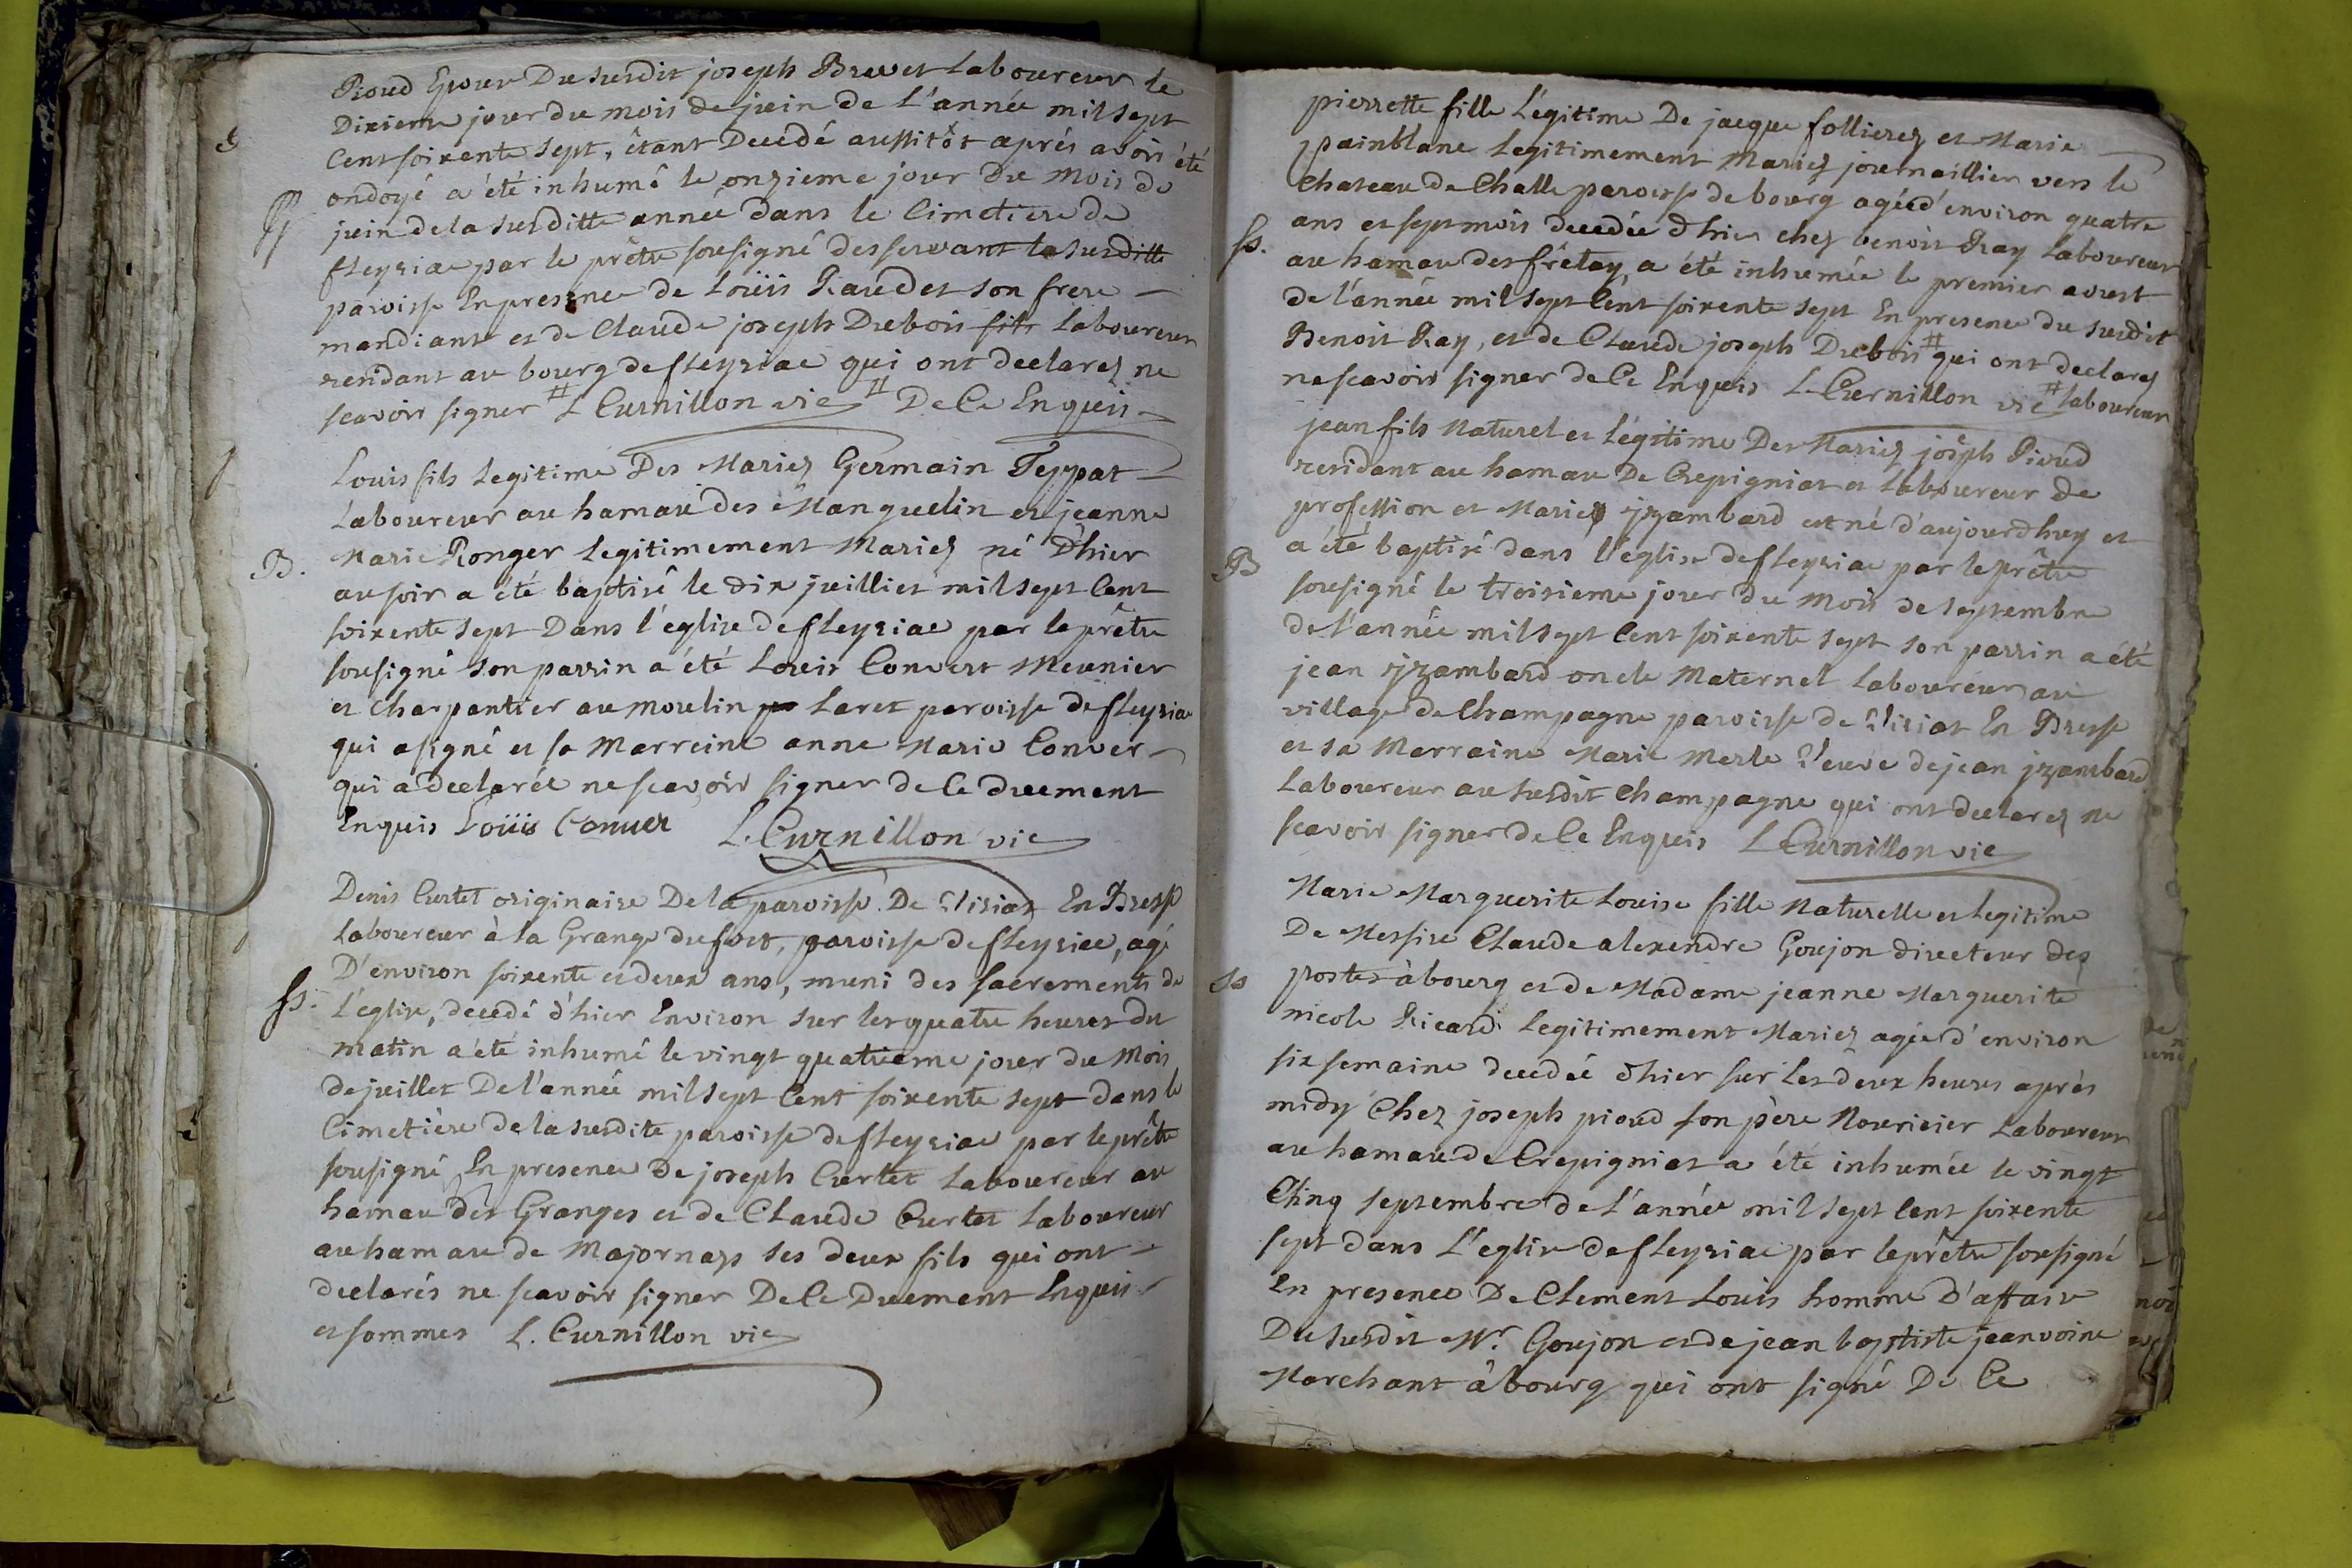 Pioud Epouse Du susdit joseph Brevet Laboureur le
Dixieme jour du mois de juin de L'année mil sept
Cent soixente sept, étant Decedé aussitôt aprés avoir été
ondoyé a été inhumé le onzieme jour du mois de
juin de la susditte année dans le Cimetiere de
fleyriac par le prêtre sousigné desservant la susditte
paroisse En presence de Loüis et son frere
mandiant et de Claude joseph Dubois fils Laboureur
residant au bourg de fleyriac qui ont declarez ne
scavoir signer # L Curnillon vic # De Ce Enquis
Louis fils Legitime Des Mariez Germain Teppat
Laboureur au hamau des Manguelin et jeanne
B. Marie Ronger Legitimement Mariez né D'hier
au soir a été baptisé le dix juilliet mil sept Cent
soixente sept Dans l'église de fleyriac par le prêtre
sousigné son parrin a été Louis Convert Meunier
et Charpantier au moulin Laret paroisse de fleyriac
qui a signé et sa Marreine anne Marie Conver
qui a declarée ne scavoir signer de Ce duement
Enquis Loüis Conver L. Curnillon vic
Denis Curtet originaire De la paroisse De Visiat En Bresse
Laboureur à la Grange du fort, paroisse de fleyriac, agé
D'environ soixente et deux ans, muni des sacrements de
Ss. L'eglise, decedé d'hier Environ sur les quatre heures du
matin a été inhumé le vingt quatrieme jour du Mois
de juillet De l'année mil sept Cent soixente sept dans le
Cimetière de la susdite paroisse de fleyriac par le prêtre
sousigné En presence de joseph Curtet Laboureur au
hamau des Granges et de Claude Curtet Laboureur
au hamau de Majornas ses deux fils qui ont
declarés ne scavoir signer De Ce Duement Enquis
et sommes L. Curnillon vic
pierrette fille Légitime De jacque follierez et Marie
painblanc Legitimement Mariez journaillier vers le
Chateau de Challe paroisse de bourg agée d'environ quatre
ans et sept mois decedée d'hier chez benoit Ray Laboureur
Ss. au hamau des frêtay, a été inhumée le premier aoust
de l'année mil sept Cent soixente sept En presence du susdit
Benoit Ray, et de Claude joseph Dubois # qui ont declarez
ne scavoir signer de Ce Enquis L Curnillon vic # laboureur
jean fils Naturel et Légitime Des Mariez joseph Pioud
residant au hamau De Crepigniat et Laboureur de
profession et Marie jzambard est né d'aujourdhuy et
B a été baptisé dans l'église de fleyriac par le prêtre
sousigné le troisieme jour du mois de septembre
de l'année mil sept Cent soixente sept son parrin a été
jean jzambard oncle Maternel Laboureur au
village de Champagne paroisse de Visiat En Bresse
et sa Marraine Marie Merle Veuve de jean jzambard
Laboureur au susdit Champagne qui ont declarez ne
scavoir signer de Ce Enquis L Curnillon vic
Marie Marguerite Louise fille Naturelle et Legitime
De Messire Claude alexendre Goujon directeur des
Ss postes à bourg et de Madame jeanne Marguerite
nicole Ricard Legitimement Mariez agée d'environ
six semaine decedée d'hier sur les deux heures après
midy Chez joseph pioud son père Nouricier Laboureur
au hamau de Crepigniat a été inhumée le vingt
Cinq septembre de L'année mil sept Cent soixente
sept dans L'eglise de fleyriac par le prêtre sousigné
En presence De Clement Louis homme D'affaire
Du susdit Mr. Goujon et de jean baptiste jeanvoine
Marchant à bourg qui ont signé De Ce